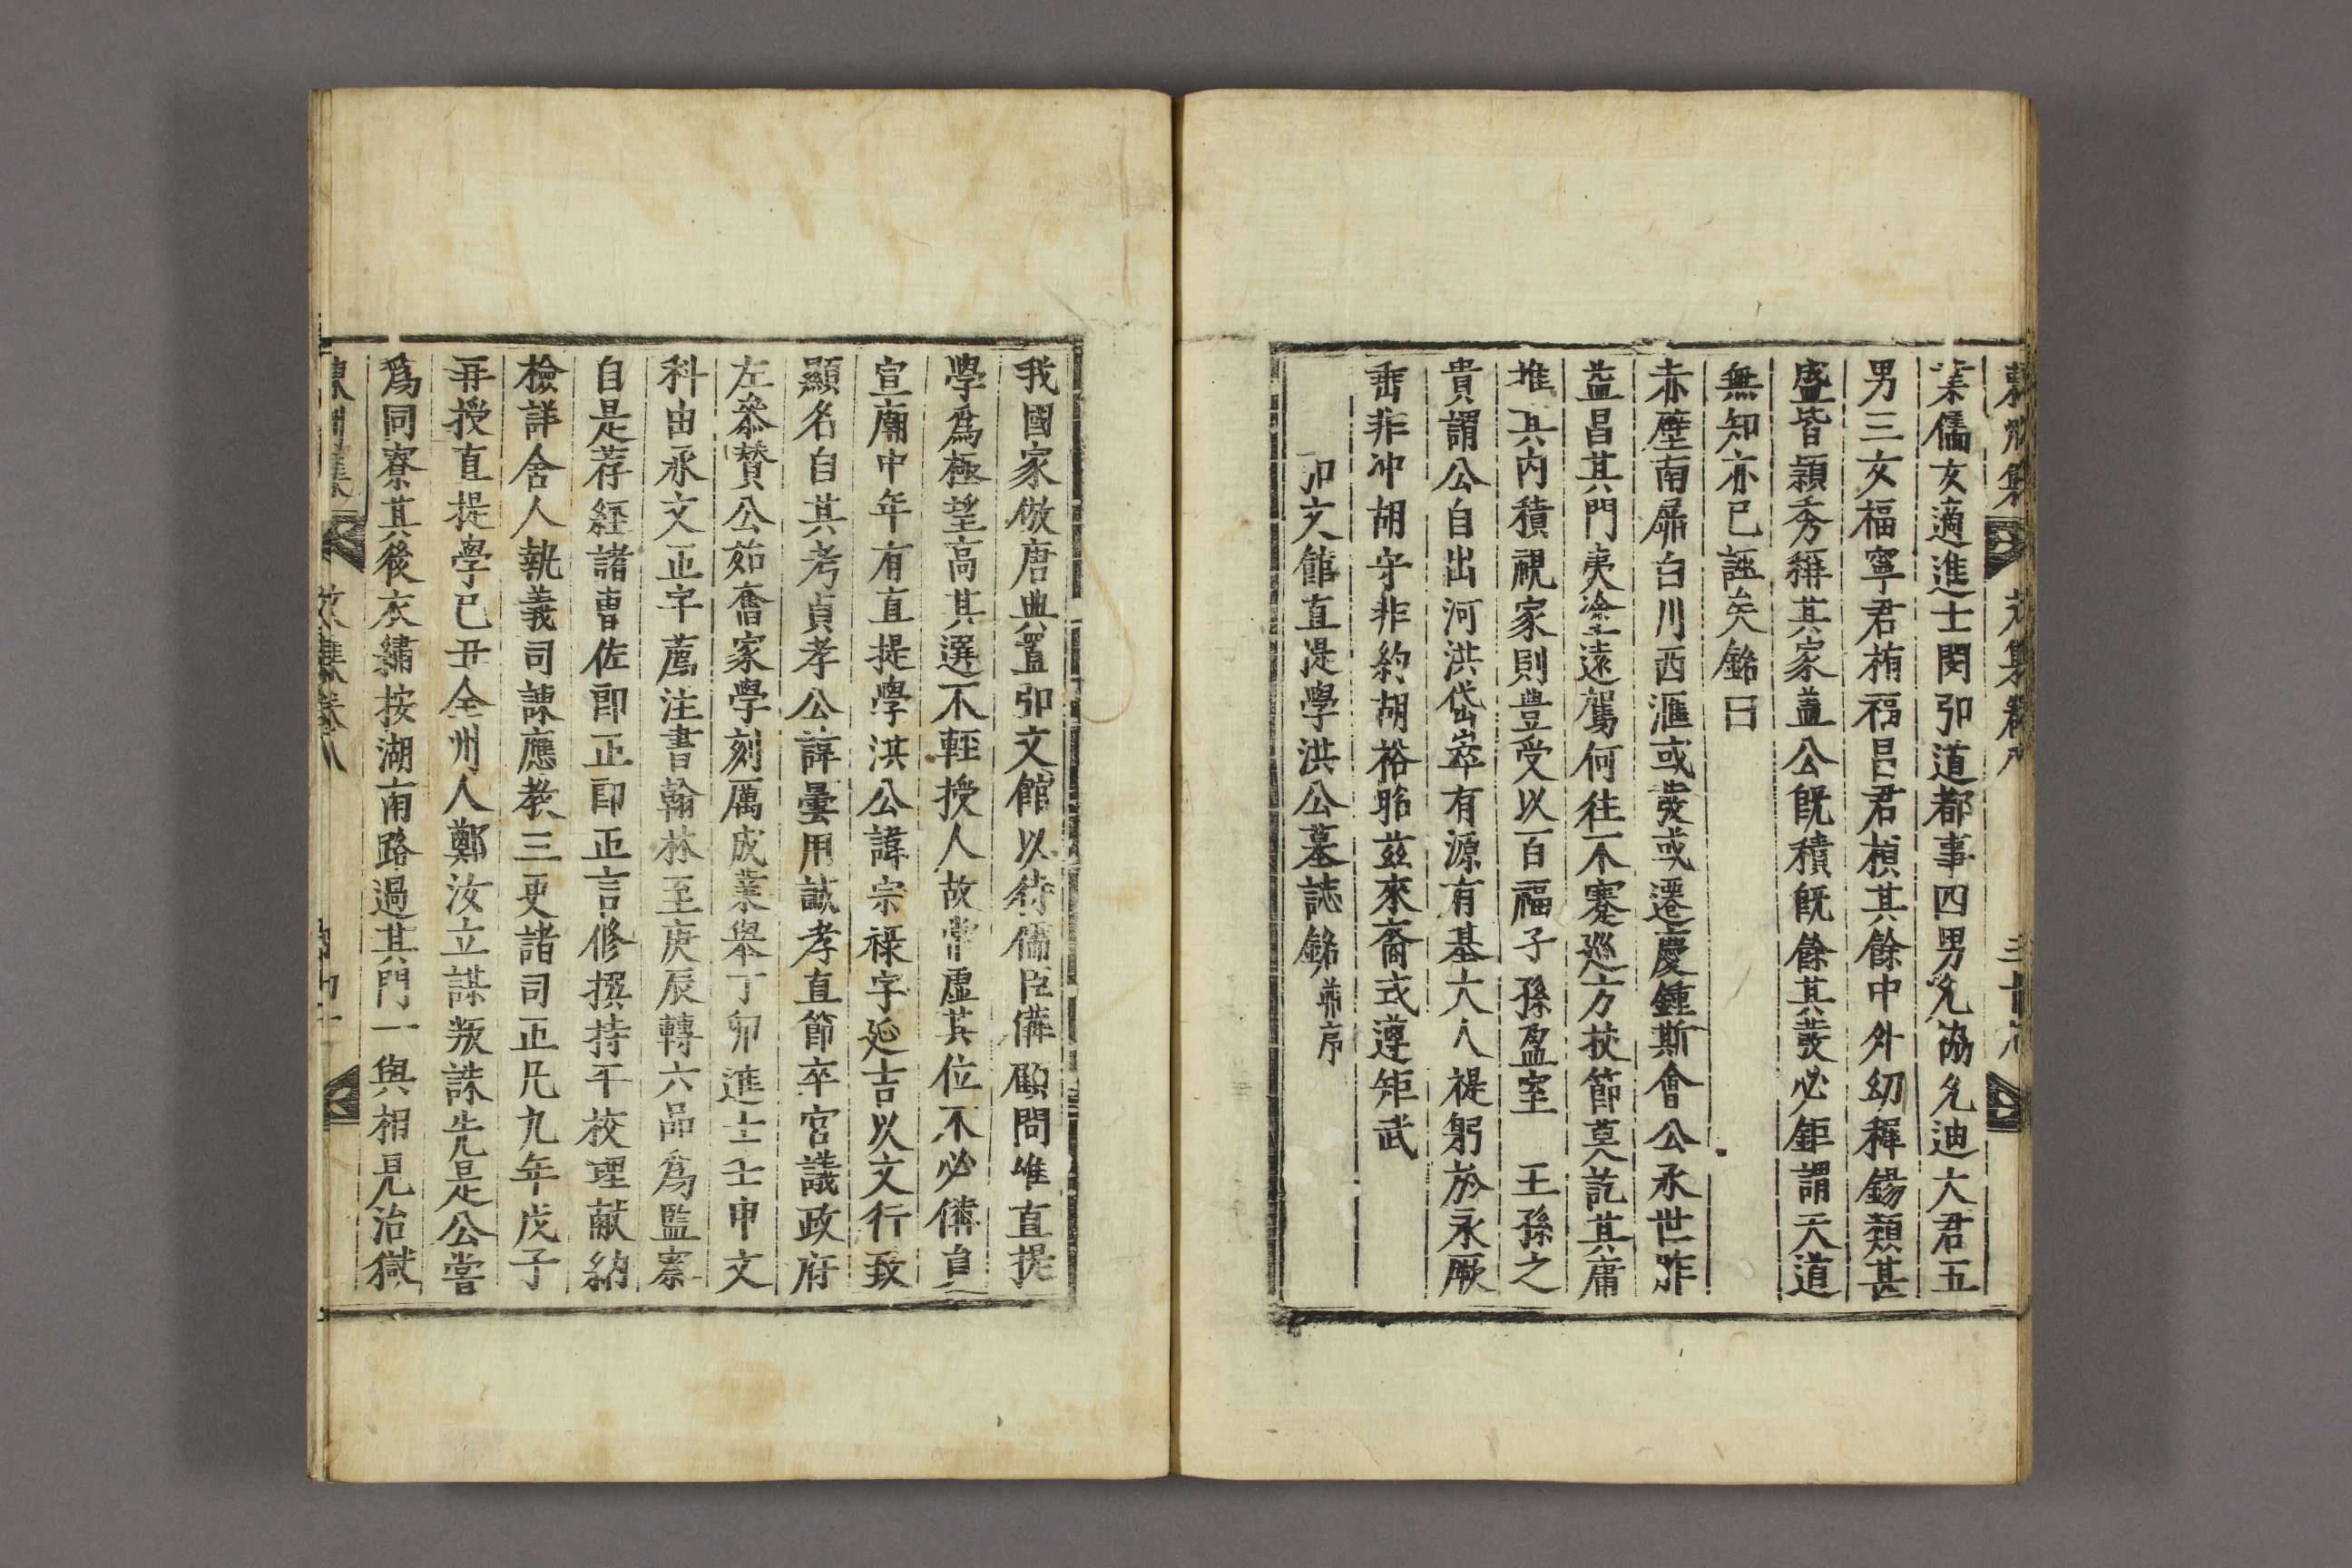 東州集 文集卷八 三十
業儒女適進士閔弘道都事四男允協允迪大君五
男三女福寧君栯福昌君楨其餘中外幼穉錫類甚
盛皆穎秀稱其家盖公旣積旣餘其發必鉅謂天道
無知亦已誣矣銘曰
赤壁南屛白川西滙或發或遷慶鍾斯會公承世胙
益昌其門夷塗遠駕何往不騫巡方杖節莫訖其庸
推其內積視家則豊受以百福子孫盈室 王孫之
貴謂公自出河洪岱崒有源有基大人禔躬於永厥
垂非冲胡守非約胡裕昭昭玆來裔式遵矩武
弘文館直提學洪公墓誌銘并序
我國家倣唐典置弘文館以待儒臣備顧問唯直提
學爲極望高其選不輕授人故常虛其位不必備自
宣廟中年有直提學洪公諱宗祿字延吉以文行致
顯名自其考貞孝公諱曇用誠孝直節卒官議政府
左叅贊公茹舊家學刻厲成業擧丁卯進士壬申文
科由承文正字薦注書翰林至庚辰轉六品爲監察
自是荐經諸曹佐郞正郞正言修撰持平校理獻納
檢詳舍人執義司諫應敎三更諸司正凡九年戊子
再授直提學己丑全州人鄭汝立謀叛誅先是公嘗
爲同寮其後衣繡按湖南路過其門一與相見治獄
東州集 文集卷八